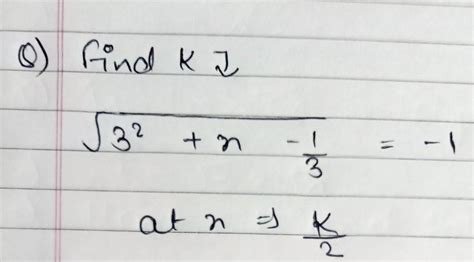 Q) Find K ↓
√(3² + n - 1/3) = -1
at n ⇒ K/2